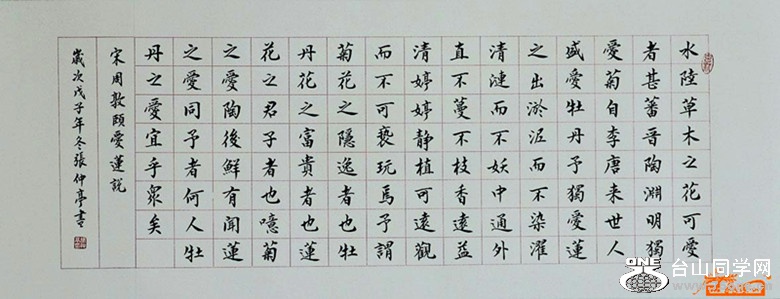 水陸草木之花可愛
者甚蕃晉陶淵明獨
愛菊自李唐来世人
盛愛牡丹予獨愛蓮
之出淤泥而不染濯
清漣而不妖中通外
直不蔓不枝香遠益
清婷婷静植可遠觀
而不可褻玩焉予謂
菊花之隱逸者也牡
丹花之富貴者也蓮
花之君子者也噫菊
之愛陶後鮮有聞蓮
之愛同予者何人牡
丹之愛宜乎眾矣
宋周敦頤愛蓮説
歲次戊子年冬張仲亭書
ONE
台山同学网